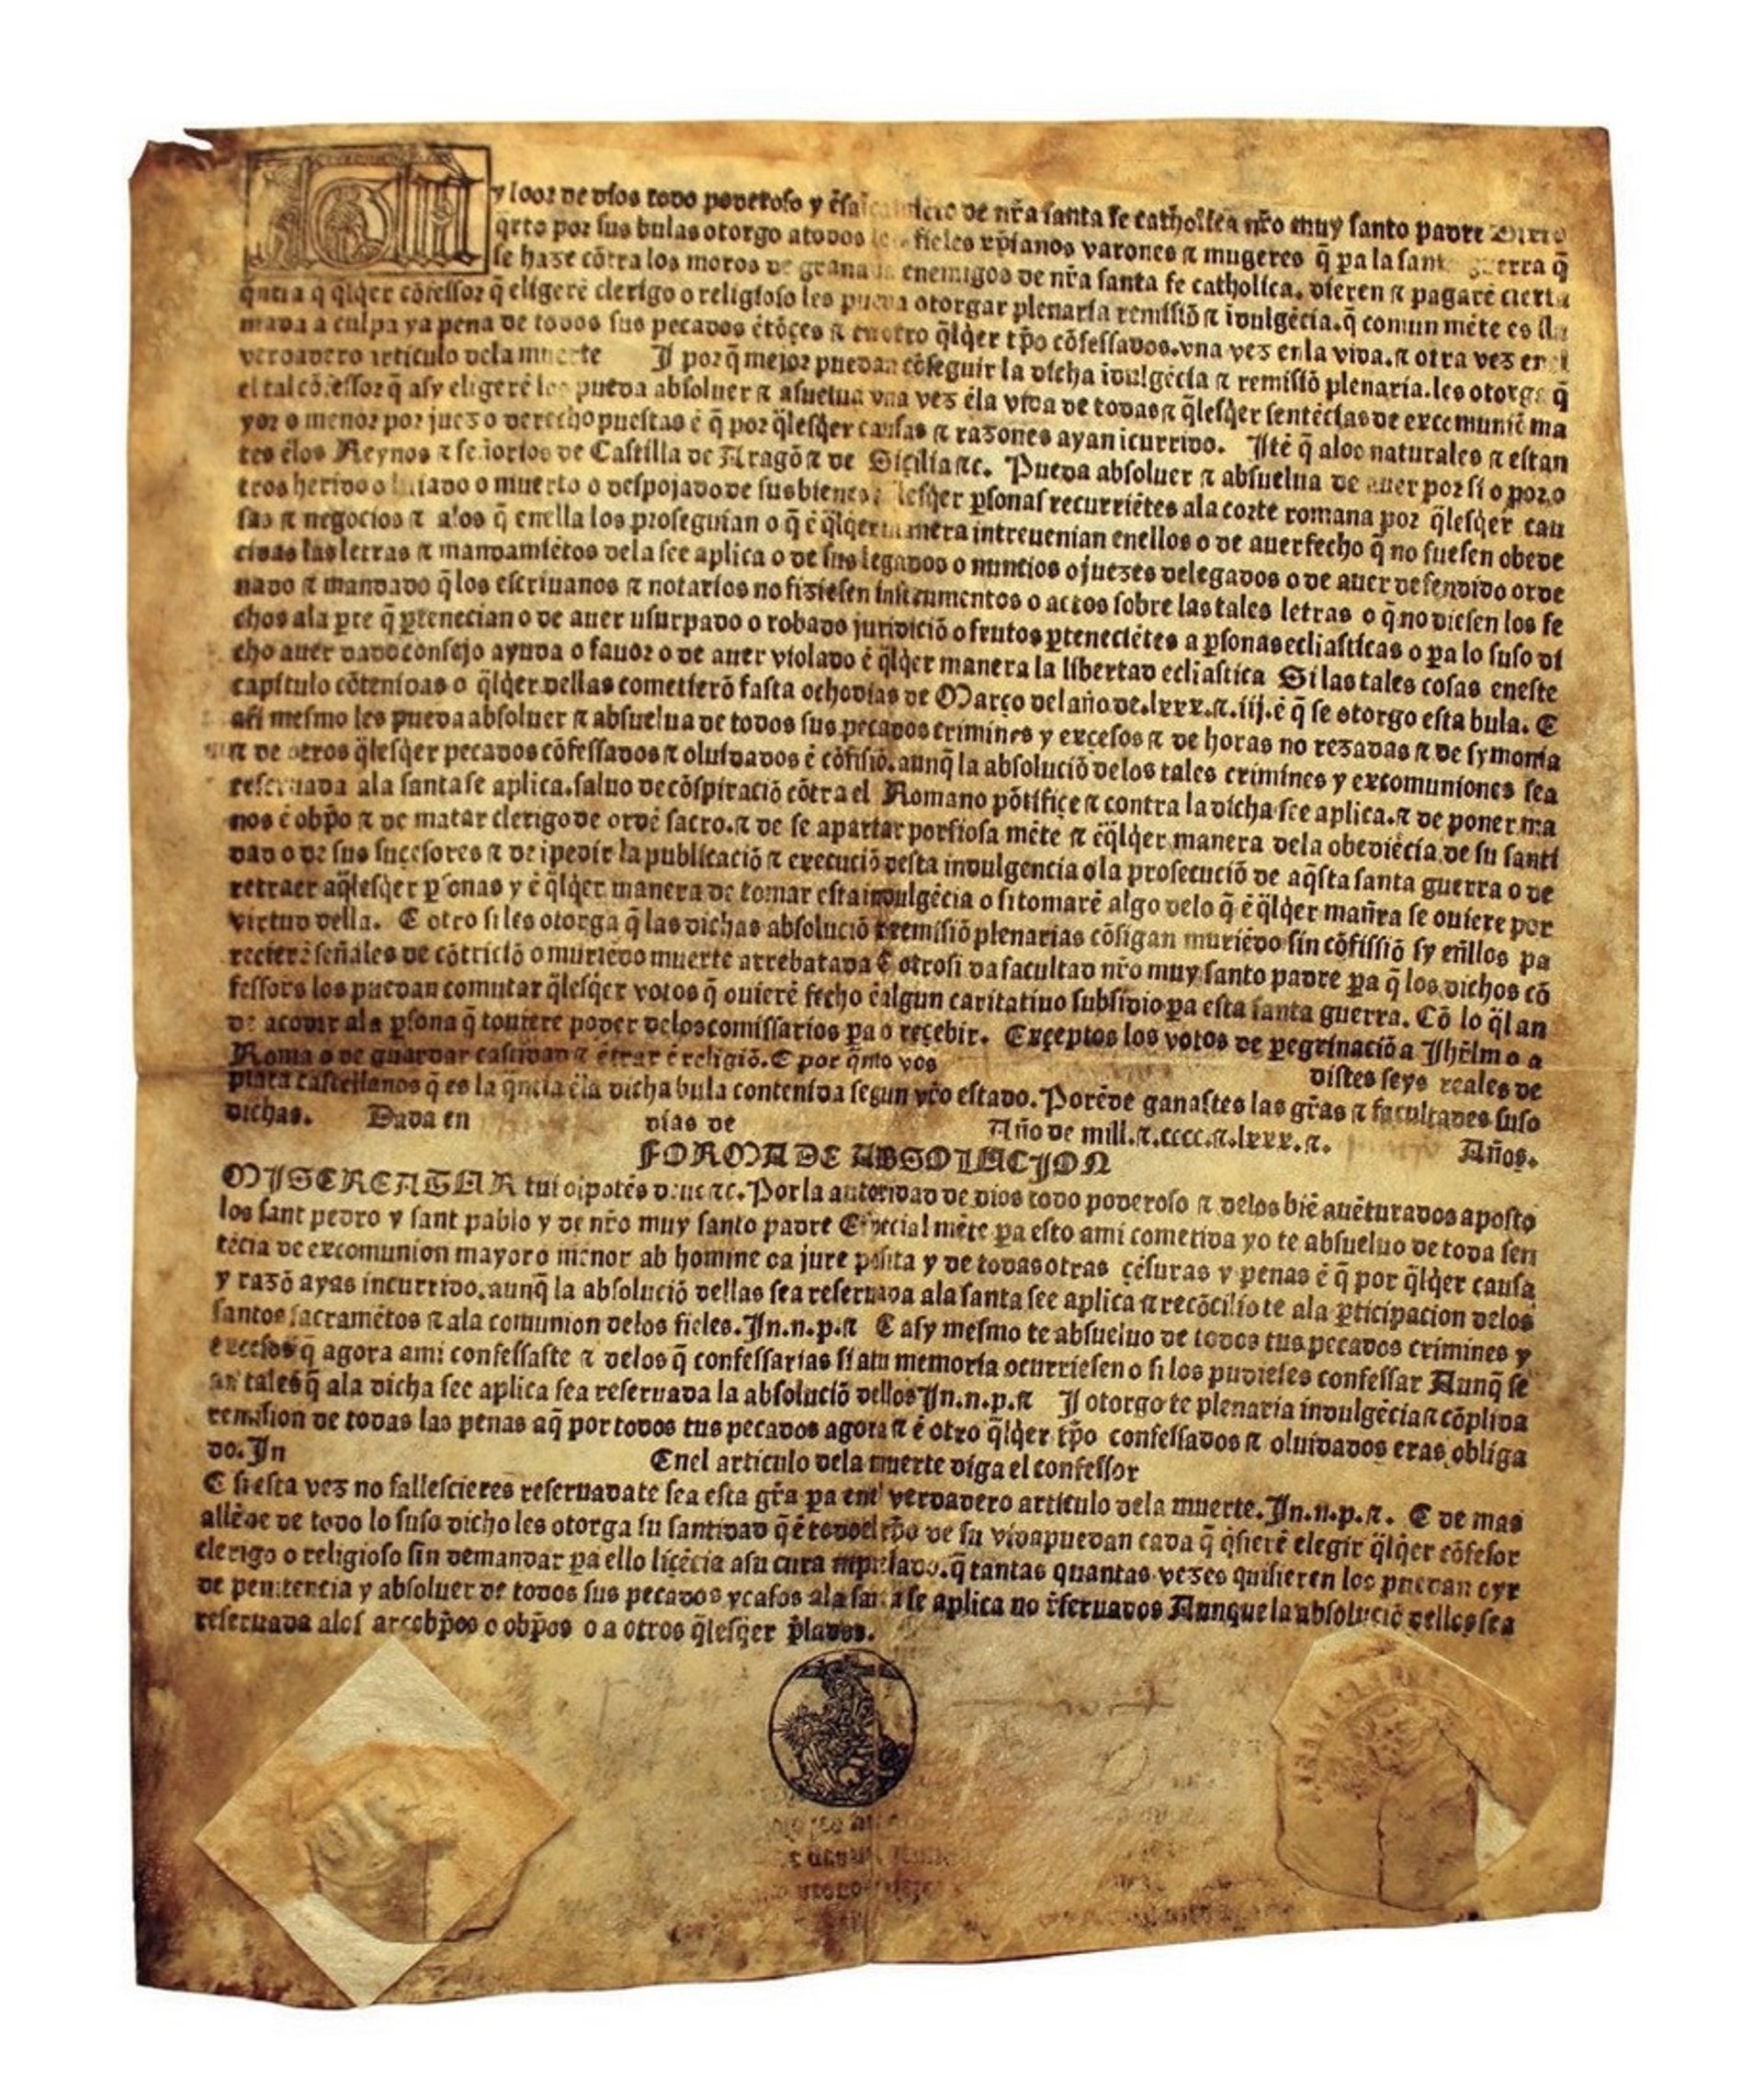 y loor de dios todo poderoso y de nr̃a santa fe catholica nr̃o muy santo padre
q̃rto por sus bulas otorgo a todos fieles xp̃ianos varones ⁊ mugeres q̃ pa la guerra q̃
se haze cõtra los moros de granada enemigos de nr̃a santa fe catholica. dieren ⁊ pagarẽ cierta
q̃ntia q̃ q̃lq̃er cõfessor q̃ eligerẽ clerigo o religioso les pueda otorgar plenaria remissiõ ⁊ idulgẽcia. q̃ comun mẽte es
mada a culpa ya pena de todos sus pecados ẽtõçes ⁊ en otro q̃lq̃er tp̃o cõfessados. vna vez enla vida. ⁊ otra vez en el
verdadero articulo dela muerte Y por q̃ mejor puedan cõseguir la dicha idulgẽcia ⁊ remissiõ plenaria. les otorga q̃
el tal cõfessor q̃ asy eligerẽ los pueda absoluer ⁊ absuelua vna vez ẽla vida de todas ⁊ q̃lesq̃er sentẽcias de excomuniõ ma
yor o menor por juez o derecho puestas ẽ q̃ por q̃lesq̃er causas ⁊ razones ayan icurrido. Itẽ q̃ alos naturales ⁊ estan
tes ẽlos Reynos ⁊ señorios de Castilla de Aragõ ⁊ de Sicilia ⁊c. Pueda absoluer ⁊ absuelua de auer por si o por o
tros herido o lisiado o muerto o despojado de sus bienes q̃lesq̃er ꝑsonas recurriẽtes ala corte romana por q̃lesq̃er cau
sas ⁊ negocios ⁊ alos q̃ enella los proseguian o q̃ ẽ q̃lq̃er manera intreuenian enellos o de auer fecho q̃ no fuesen obede
cidas las letras ⁊ mandamiẽtos dela see aplica o de sus legados o nuncios o juezes delegados o de auer defendido orde
nado ⁊ mandado q̃ los escriuanos ⁊ notarios no fiziesen instrumentos o actos sobre las tales letras o q̃ no diesen los fe
chos ala ꝑte q̃ ꝑtenecian o de auer usurpado o robado juridiciõ o frutos ꝑteneciẽtes a ꝑsonas ecliasticas o ꝑa lo suso di
cho auer dado consejo ayuda o fauor o de auer violado ẽ q̃lq̃er manera la libertad ecliastica Si las tales cosas eneste
capitulo cõtenidas o q̃lq̃er dellas cometierõ fasta ocho dias de Março del año de. lxxx. ⁊. iij. ẽ q̃ se otorgo esta bula. E
asi mesmo les pueda absoluer ⁊ absuelua de todos sus pecados crimines y excesos ⁊ de horas no rezadas ⁊ de symonia
⁊ de otros q̃lesq̃er pecados cõfessados ⁊ oluidados ẽ cõfisiõ. aunq̃ la absoluciõ delos tales crimines y excomuniones sea
reseruada ala santa se aplica. saluo de cõspiraciõ cõtra el Romano põtifiçe ⁊ contra la dicha see aplica. ⁊ de poner ma
nos ẽ obp̃o ⁊ de matar clerigo de ordẽ sacro. ⁊ de se apartar porfiosa mẽte ⁊ ẽ q̃lq̃er manera dela obediẽcia de su santi
dad o de sus suçesores ⁊ de ipedir la publicaciõ ⁊ execuciõ desta indulgencia o la prosecuciõ de aq̃sta santa guerra o de
retraer aq̃lesq̃er ꝑsonas y ẽ q̃lq̃er manera de tomar esta indulgẽcia o si tomarẽ algo delo q̃ ẽ q̃lq̃er mañra se ouiere por
virtud della. E otro si les otorga q̃ las dichas absoluciõ ⁊ remissiõ plenarias cõsigan muriẽdo sin cõfissiõ sy eñllos pa
recierẽ señales de cõtriciõ o muriẽdo muerte arrebatada E otrosi da facultad nr̃o muy santo padre ꝑa q̃ los dichos cõ
fessors los puedan comutar q̃lesq̃er votos q̃ ouierẽ fecho ẽ algun caritatiuo subsidio ꝑa esta santa guerra. Cõ lo q̃l an
de acodir ala ꝑsona q̃ touiere poder delos comissarios ꝑa o reçebir. Exçeptos los votos de peregrinaciõ a Jhr̃lm o a
Roma o de guardar castidad ⁊ ẽtrar ẽ religiõ. E por q̃nto vos
distes seys reales de
plata castellanos q̃ es la q̃ntia ẽla dicha bula contenida segun vr̃o estado. Porẽde ganastes las gr̃as ⁊ facultades suso
dichas. Dada en dias de Año de mill. ⁊. cccc. ⁊. lxxx. ⁊. Años.
FORMA DE ABSOLUCION
MISEREATUR tui oĩpotẽs deus ⁊c. Por la autoridad de dios todo poderoso ⁊ delos biẽ auẽturados aposto
los sant pedro y sant pablo y de nr̃o muy santo padre Especial mẽte ꝑa esto ami cometida yo te absueluo de toda sen
tẽcia de excomunion mayor o menor ab homine o a jure posita y de todas otras çẽsuras y penas ẽ q̃ por q̃lq̃er causa
y razõ ayas incurrido. aunq̃ la absoluciõ dellas sea reseruada ala santa see aplica ⁊ recõcilio te ala ꝑticipacion delos
santos sacramẽtos ⁊ ala comunion delos fieles. In. n. p. ⁊ E asy mesmo te absueluo de todos tus pecados crimines y
excesos q̃ agora ami confessaste ⁊ delos q̃ confessarias si atu memoria ocurriesen o si los pudieses confessar Aunq̃ se
an tales q̃ ala dicha see aplica sea reseruada la absoluciõ dellos In. n. p. ⁊ Y otorgo te plenaria indulgẽcia ⁊ cõplida
remision de todas las penas aq̃ por todos tus pecados agora ⁊ ẽ otro q̃lq̃er tp̃o confessados ⁊ oluidados eras obliga
do. In Enel articulo dela muerte diga el confessor
E si esta vez no fallescieres reseruadate sea esta gr̃a ꝑa enel verdadero articulo dela muerte. In. n. p. ⁊. E de mas
allẽde de todo lo suso dicho les otorga su santidad q̃ ẽ todo el tp̃o de su vida puedan cada q̃ q̃sierẽ elegir q̃lq̃er cõfesor
clerigo o religioso sin demandar ꝑa ello liçẽcia asu cura ni prelado. q̃ tantas quantas vezes quisieren los puedan oyr
de penitencia y absoluer de todos sus pecados y casos ala santa se aplica no r̃seruados Aunque la absoluciõ dellos sea
reseruada alos arcobp̃os o obp̃os o a otros q̃lesq̃er p̃lados.